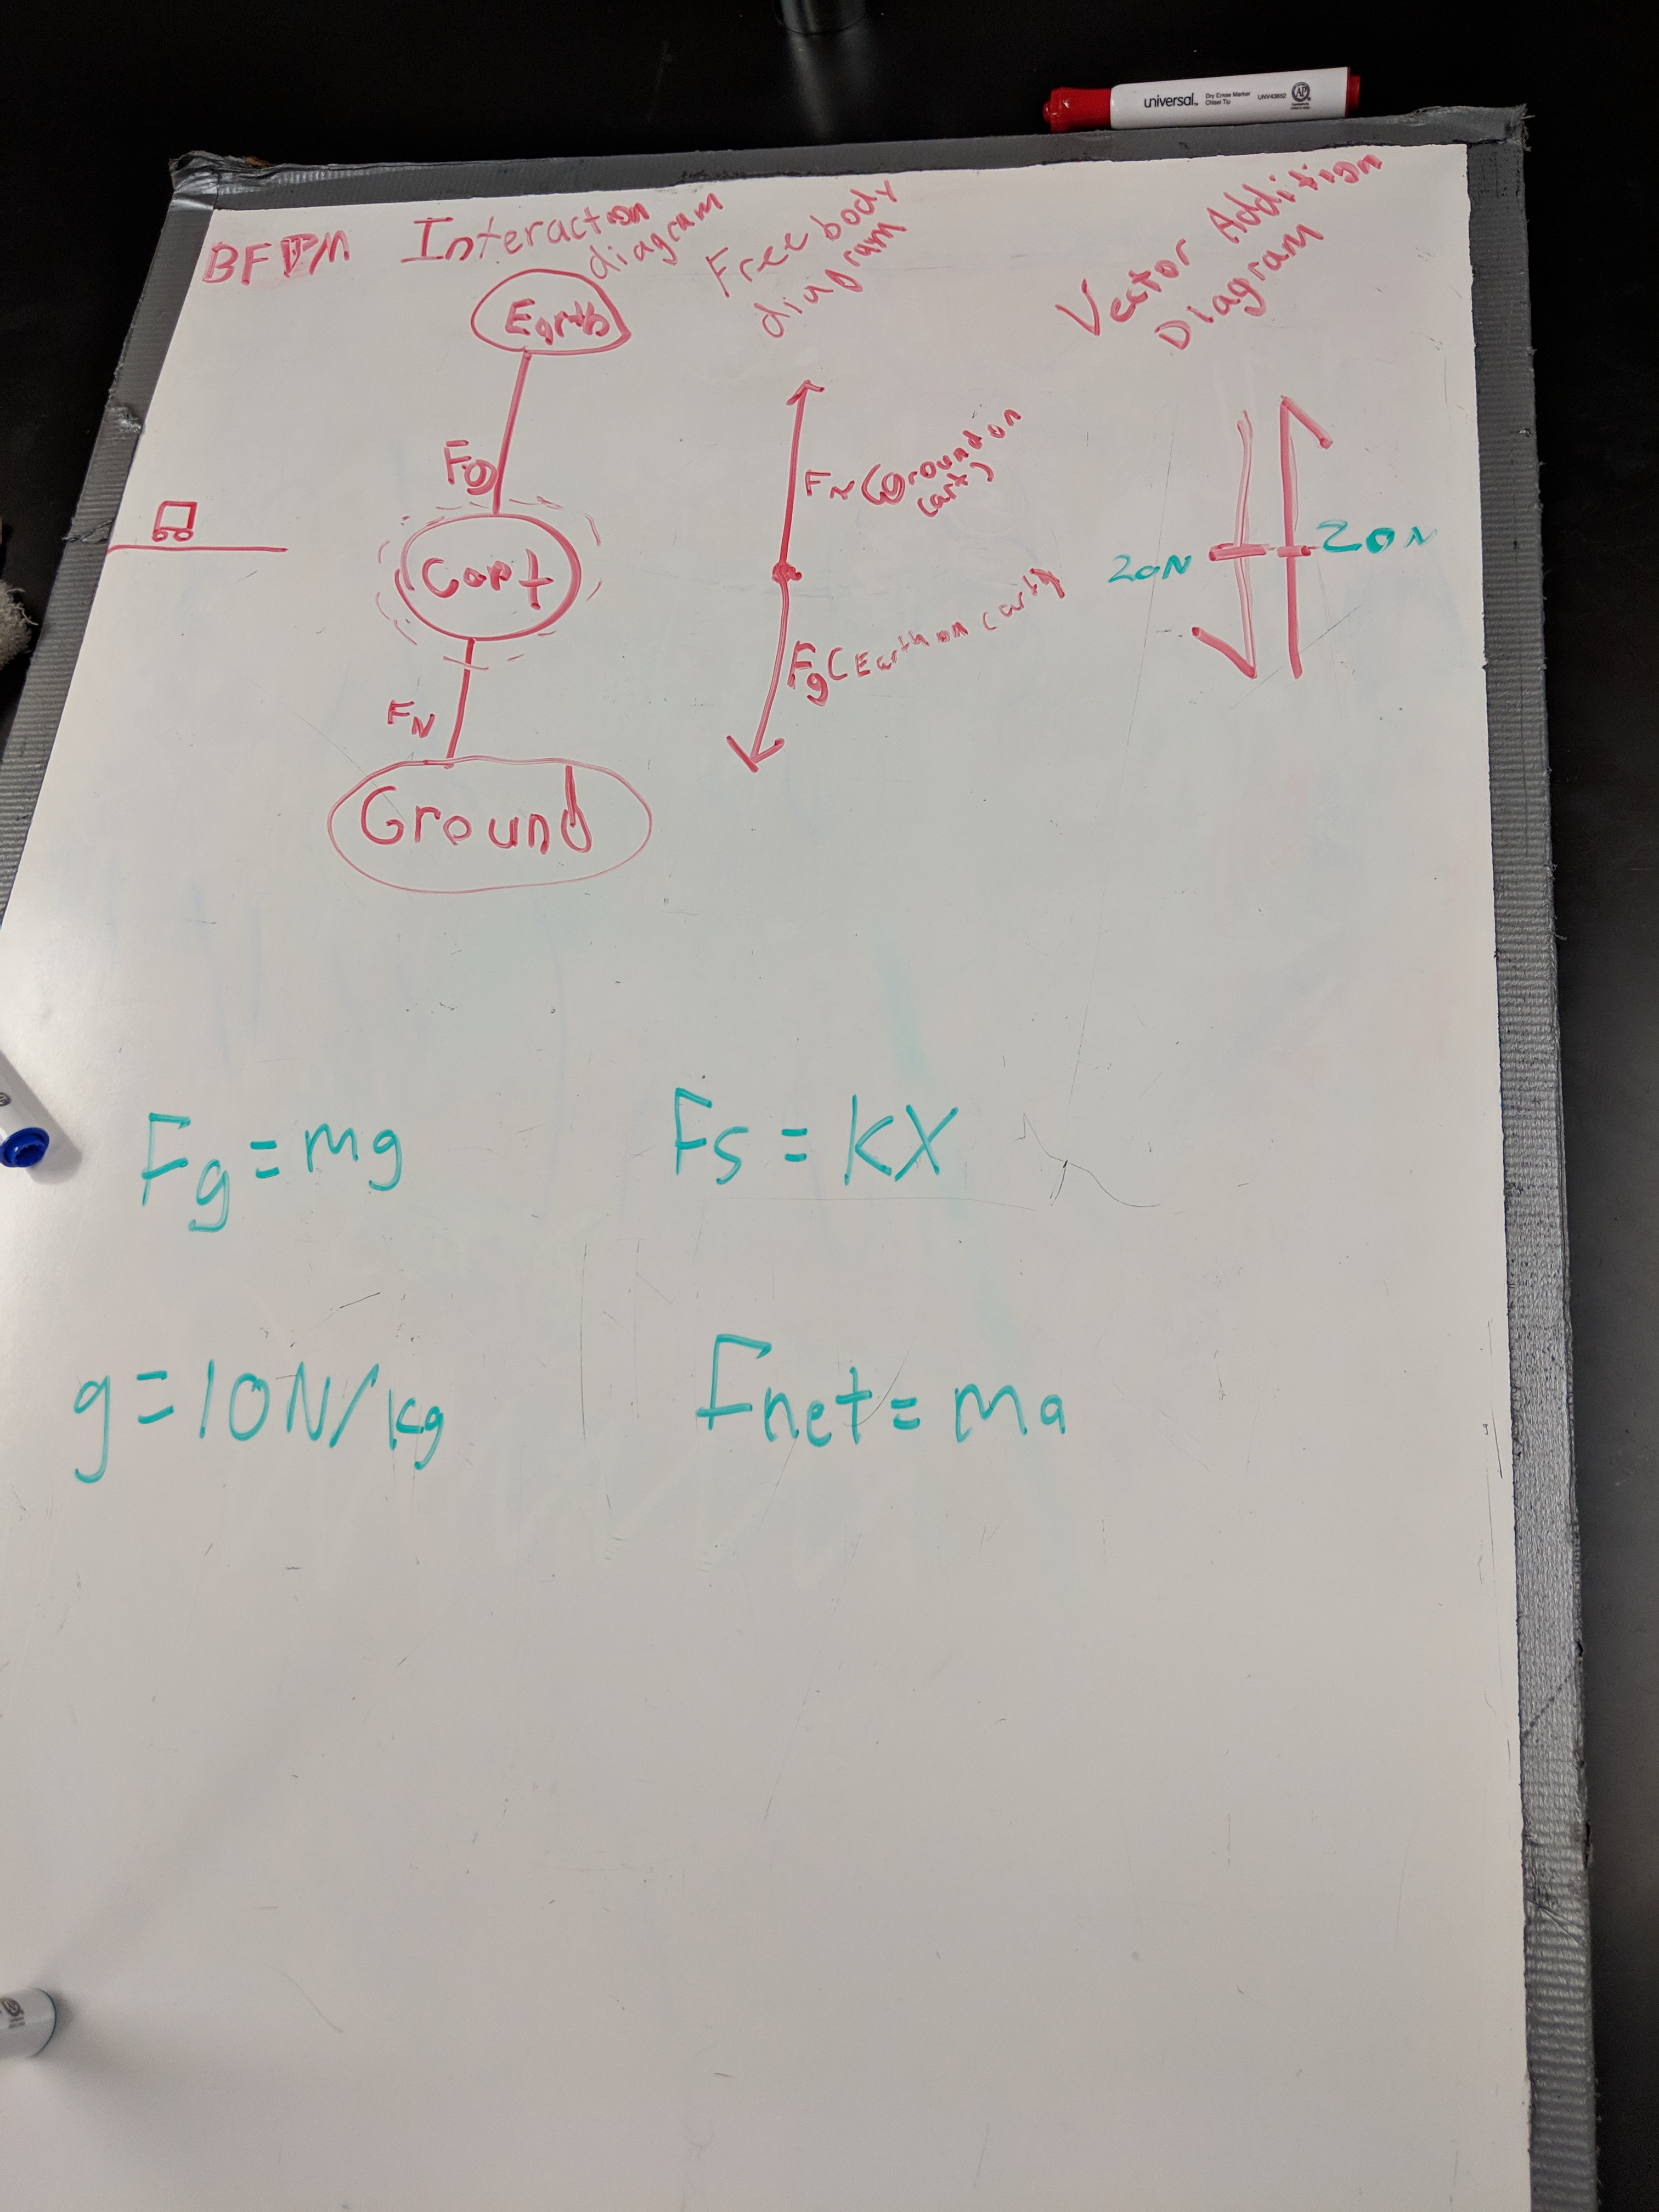 universal
Dry Erase Marker
Chisel Tip
UNV43652
AP
BFPM
Interaction
diagram
Free body
diagram
Vector Addition
Diagram
Earth
Fg
Cart
FN
Ground
FN (Ground on
cart)
Fg (Earth on cart)
20N
20N
Fg = mg
Fs = KX
g = 10N/kg
Fnet = ma